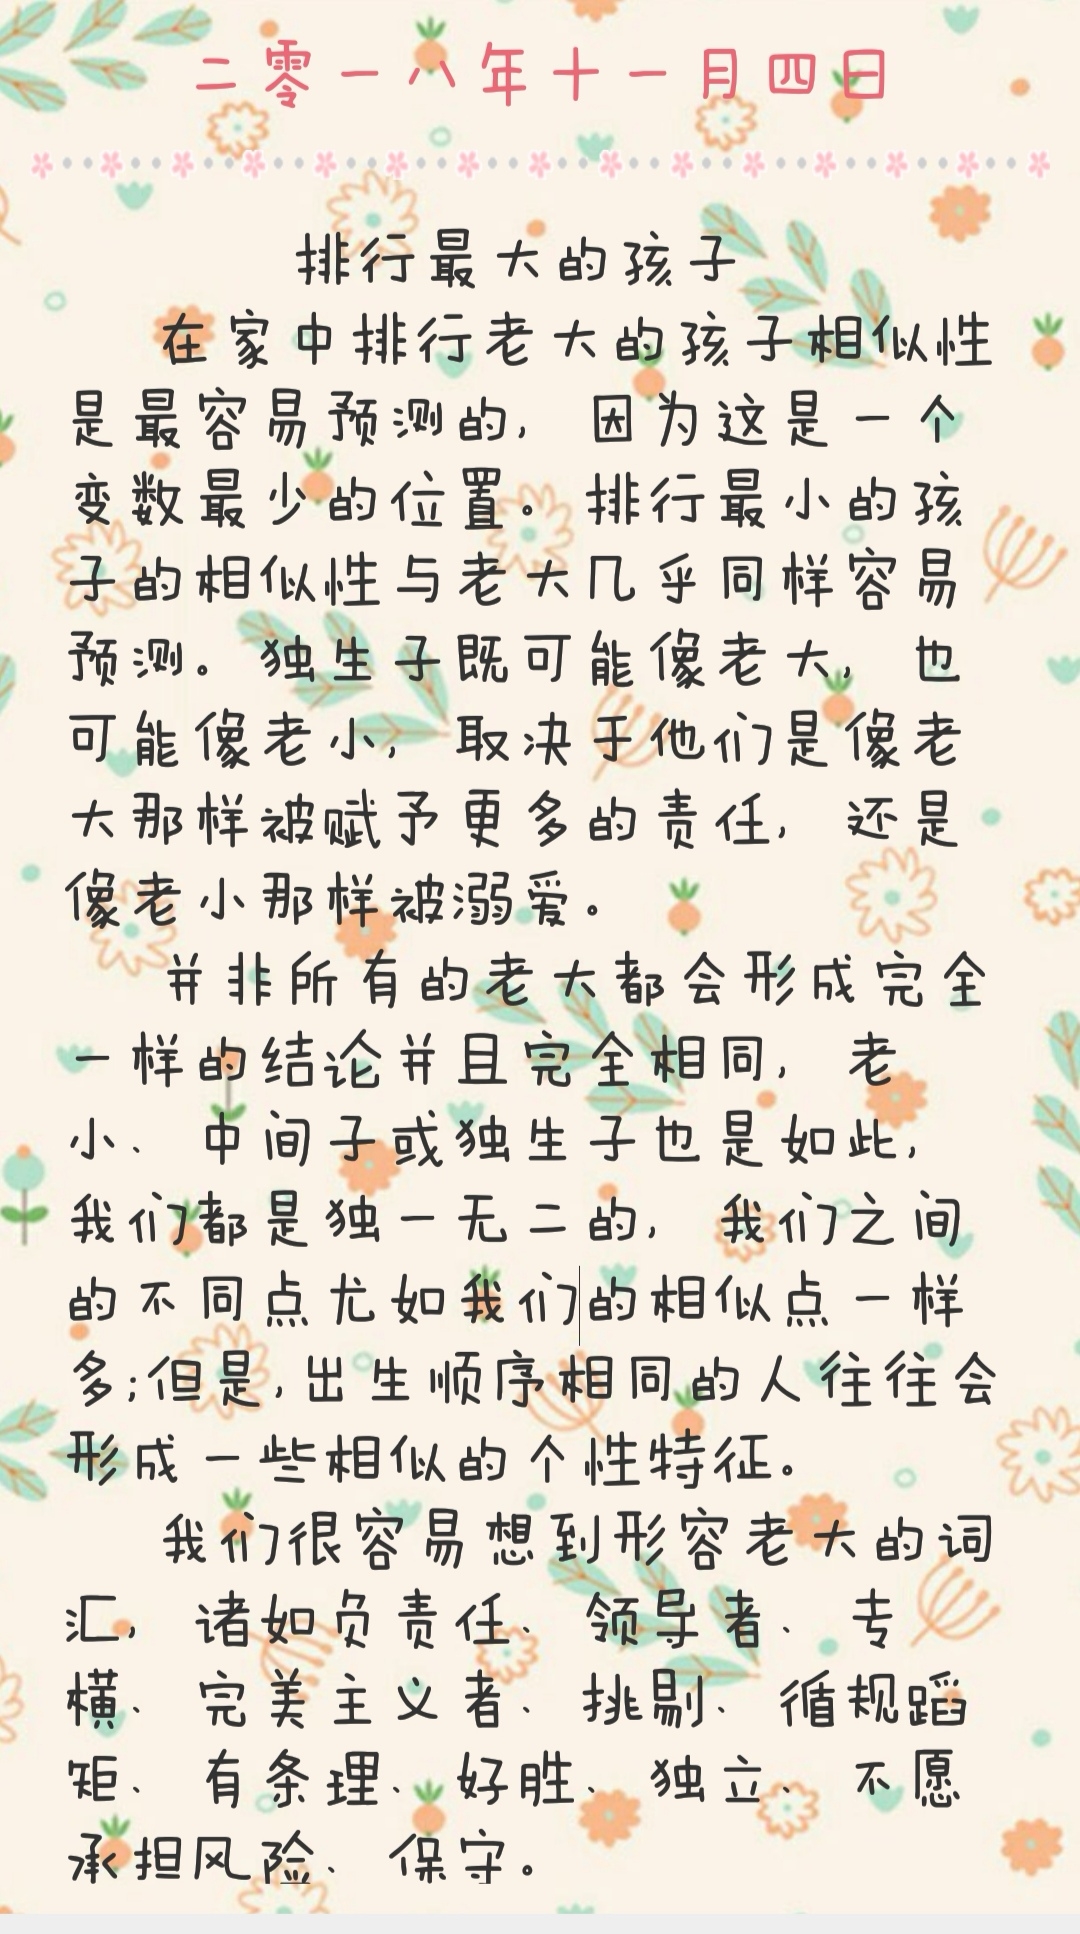 二零一八年十一月四日
排行最大的孩子
在家中排行老大的孩子相似性
是最容易预测的，因为这是一个
变数最少的位置。排行最小的孩
子的相似性与老大几乎同样容易
预测。独生子既可能像老大，也
可能像老小，取决于他们是像老
大那样被赋予更多的责任，还是
像老小那样被溺爱。
并非所有的老大都会形成完全
一样的结论并且完全相同，老
小、中间子或独生子也是如此，
我们都是独一无二的，我们之间
的不同点尤如我们的相似点一样
多；但是，出生顺序相同的人往往会
形成一些相似的个性特征。
我们很容易想到形容老大的词
汇，诸如负责任、领导者、专
横、完美主义者、挑剔、循规蹈
矩、有条理、好胜、独立、不愿
承担风险、保守。